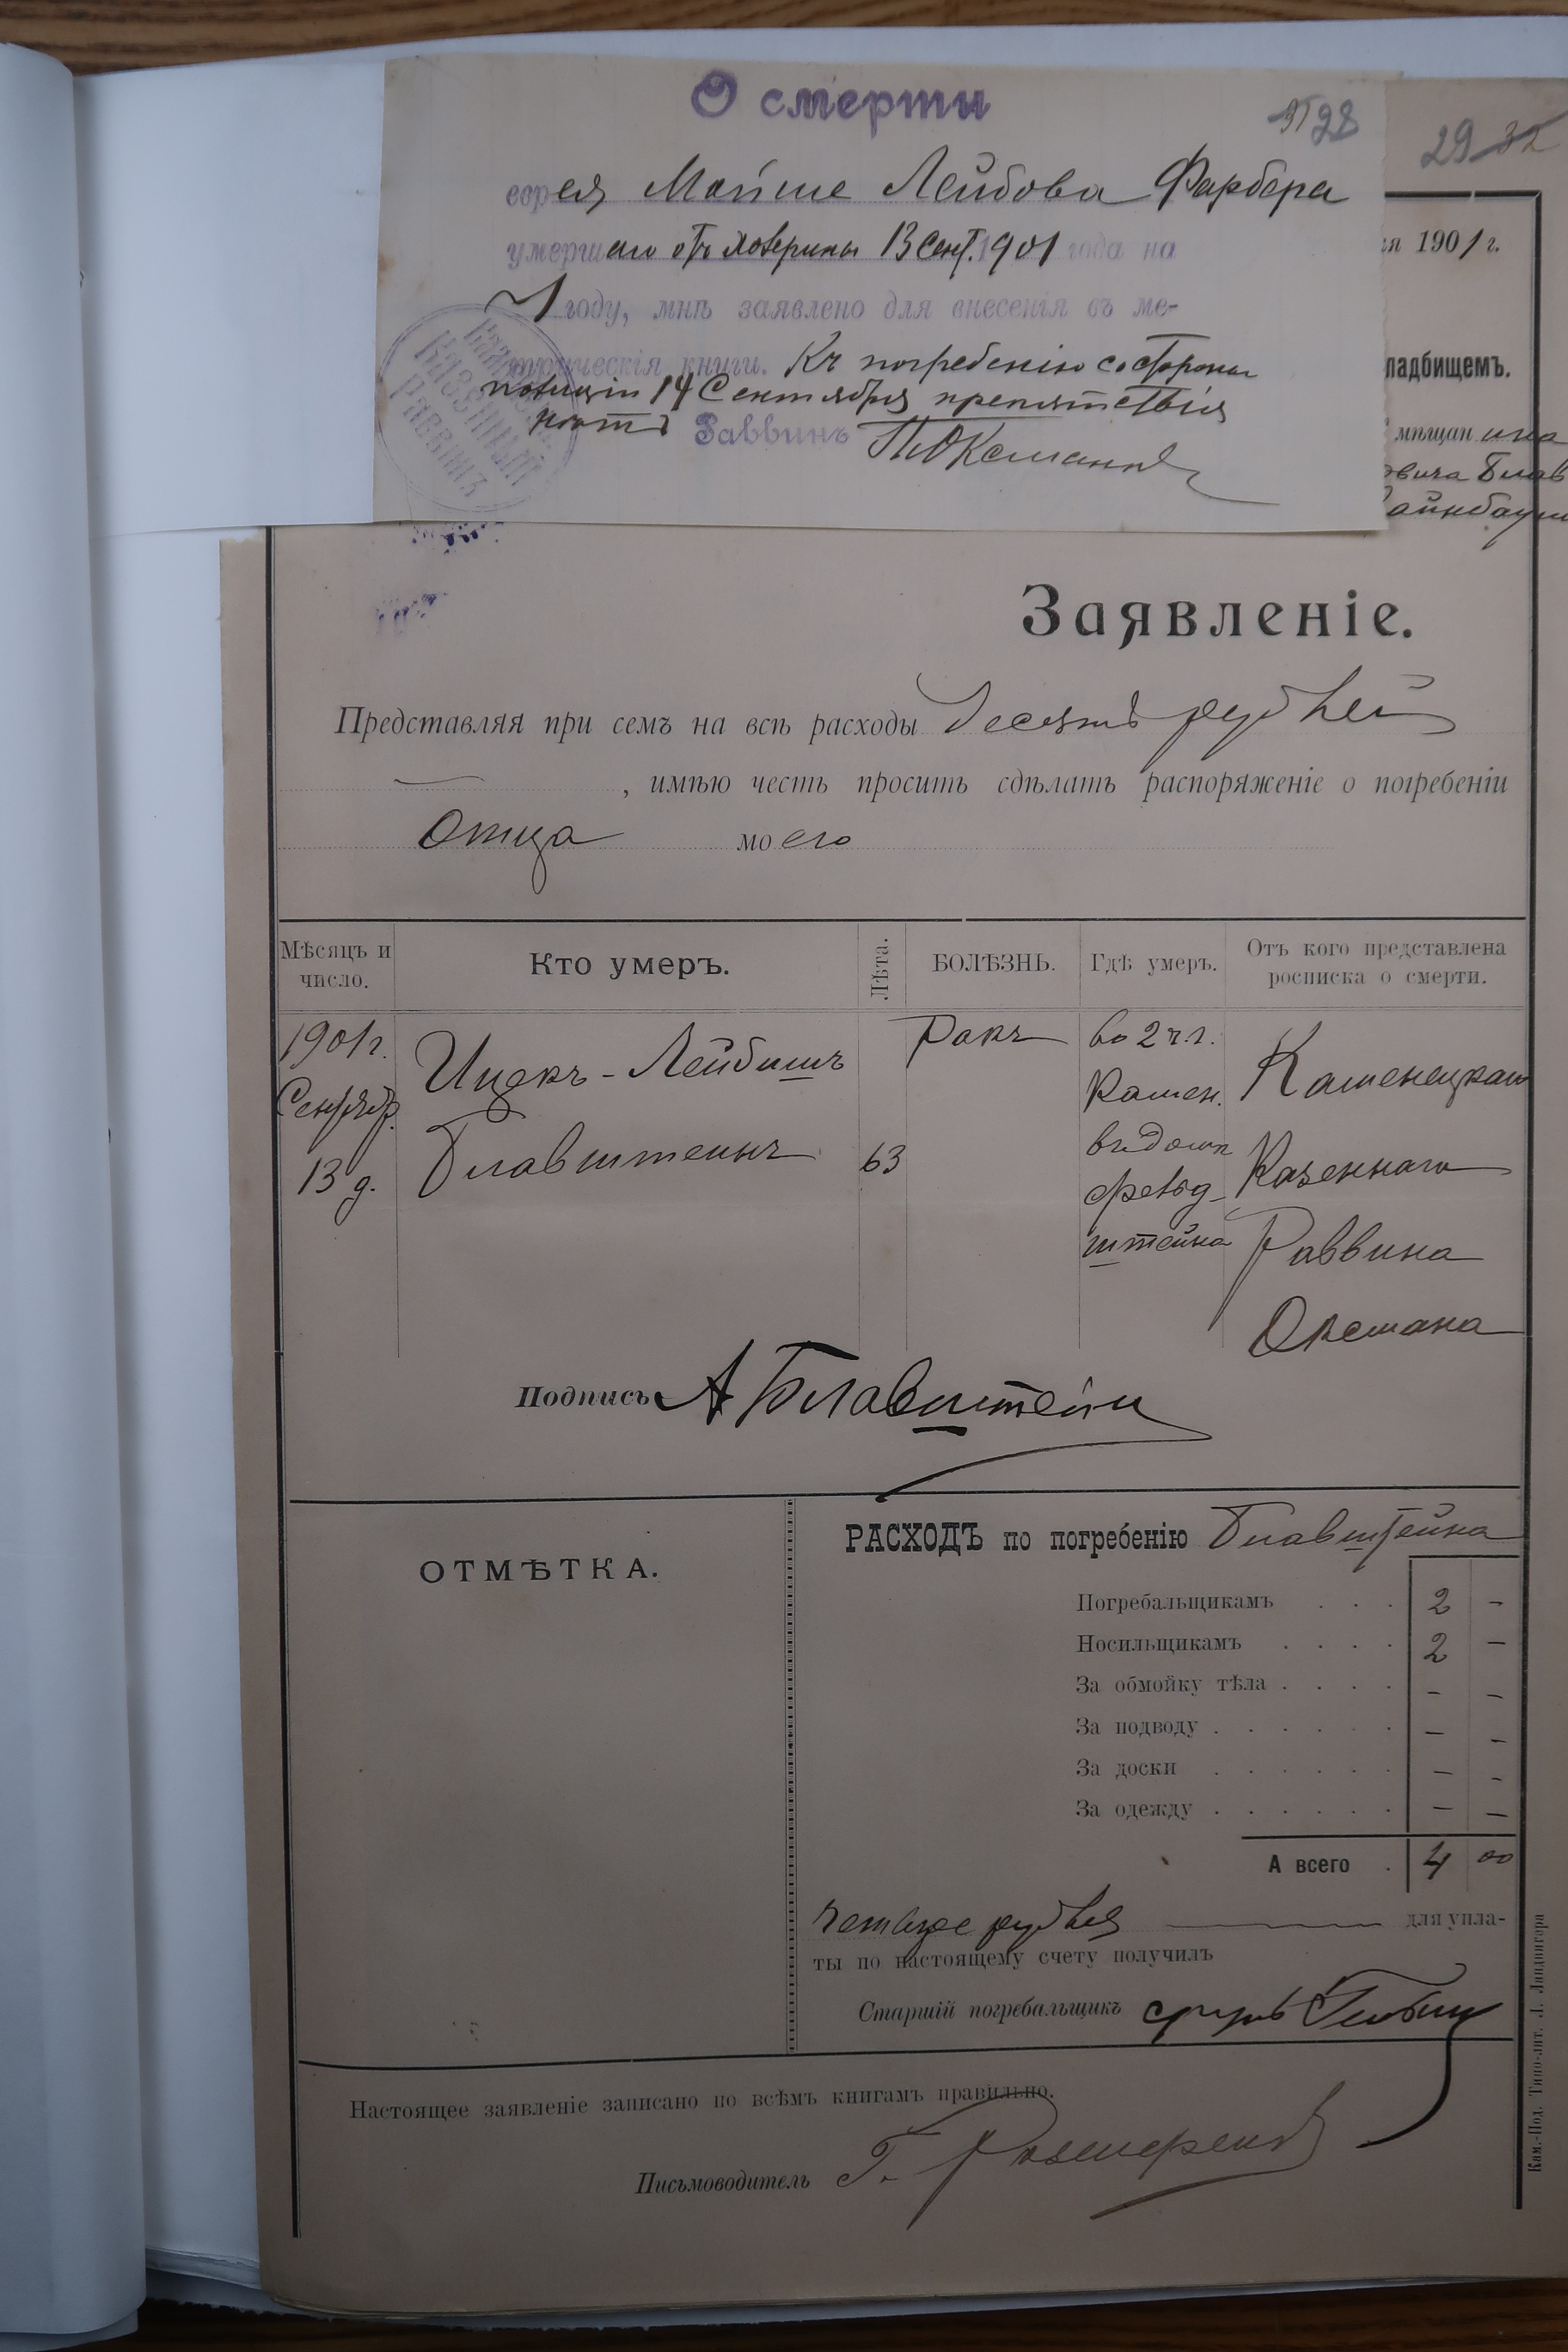 О смерти
31 28
29 32
еврея Мойше Лейбова Фарбера
умершаго отъ холерины 13 Сент. 1901 года на
1 году, мнѣ заявлено для внесенія въ ме-
трическія книги. Къ погребенію со стороны
полиціи 14 Сентября препятствія
нѣтъ Раввинъ П. Оксманъ
Казенный Раввинъ
ія 1901 г.
ладбищемъ.
мѣщанина
овича Блав
айнбаум
Заявленіе.
Представляя при семъ на всѣ расходы десять рублей
, имѣю честь просить сдѣлать распоряженіе о погребеніи
отца моего
Мѣсяцъ и число. Кто умеръ. Лѣта. БОЛѢЗНЬ. Гдѣ умеръ. Отъ кого представлена росписка о смерти.
1901 г. Ицекъ-Лейбишъ Ракъ во 2 ч. г.
Сентябр. Камен. Каменецкаго
13 д. Блавштейнъ 63 въ домѣ Казеннаго
штейна Раввина
Оксмана
Подпись А Блавштейн
ОТМѢТКА.
РАСХОДЪ по погребенію Блавштейна
Погребальщикамъ . . . 2 –
Носильщикамъ . . . . 2 –
За обмойку тѣла . . . . – –
За подводу . . . . . . – –
За доски . . . . . . – –
За одежду . . . . . . – –
А всего . 4 00
четыре рубля для упла-
ты по настоящему счету получилъ
Старшій погребальщикъ
Настоящее заявленіе записано по всѣмъ книгамъ правильно.
Письмоводитель Г.
Кам.-Под. Типо-лит. Л. Ландвигера